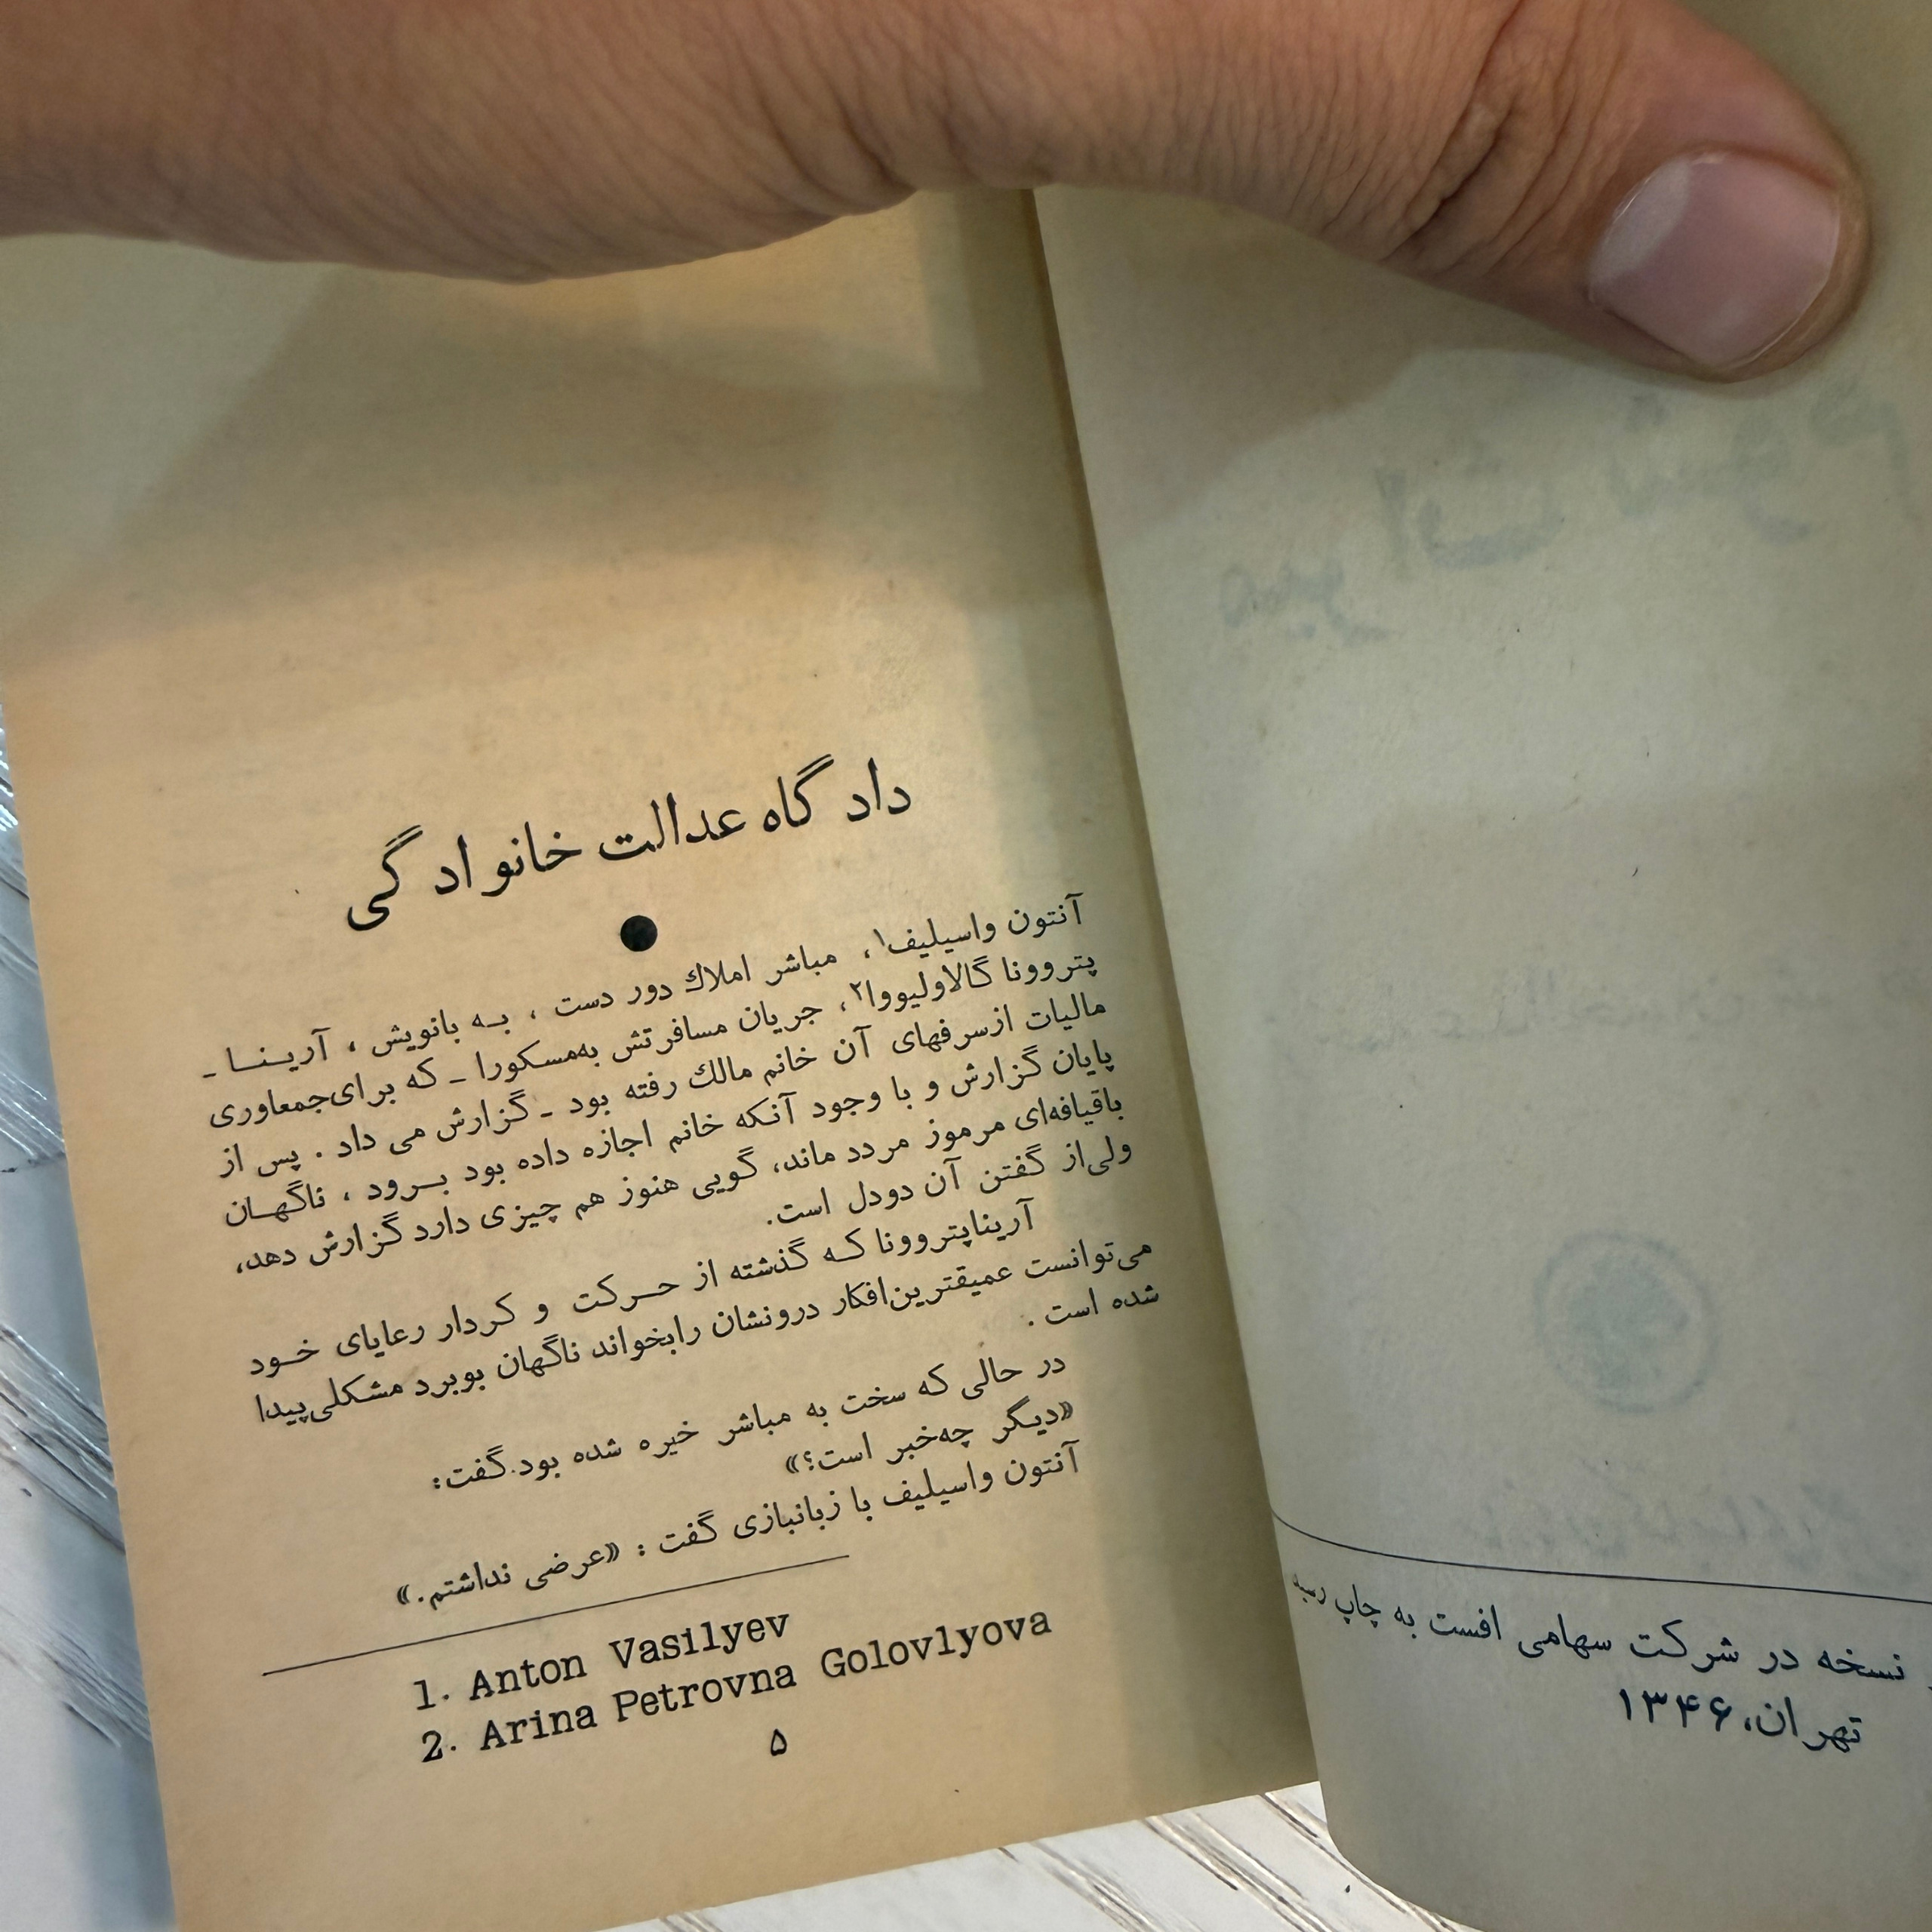 نسخه در شرکت سهامی افست به چاپ رسید
تهران، ۱۳۴۶
دادگاه عدالت خانوادگی
آنتون واسیلیف۱، مباشر املاك دور دست ، بـه بانویش ، آریـنـا ـ
پتروونا گالاولیووا۲، جریان مسافرتش به‌مسکورا ـ که برای‌جمعاوری
مالیات ازسرفهای آن خانم مالك رفته بود ـ گزارش می داد . پس از
پایان گزارش و با وجود آنکه خانم اجازه داده بود بـرود ، ناگهـان
باقیافه‌ای مرموز مردد ماند، گویی هنوز هم چیزی دارد گزارش دهد،
ولی‌از گفتن آن دودل است.
آریناپتروونا کـه گذشته از حـرکت و کردار رعایای خـود
می‌توانست عمیقترین‌افکار درونشان رابخواند ناگهان بوبرد مشکلی‌پیدا
شده است .
در حالی که سخت به مباشر خیره شده بود گفت:
«دیگر چه‌خبر است؟»
آنتون واسیلیف با زبانبازی گفت : «عرضی نداشتم.»
1. Anton Vasilyev
2. Arina Petrovna Golovlyova
۵